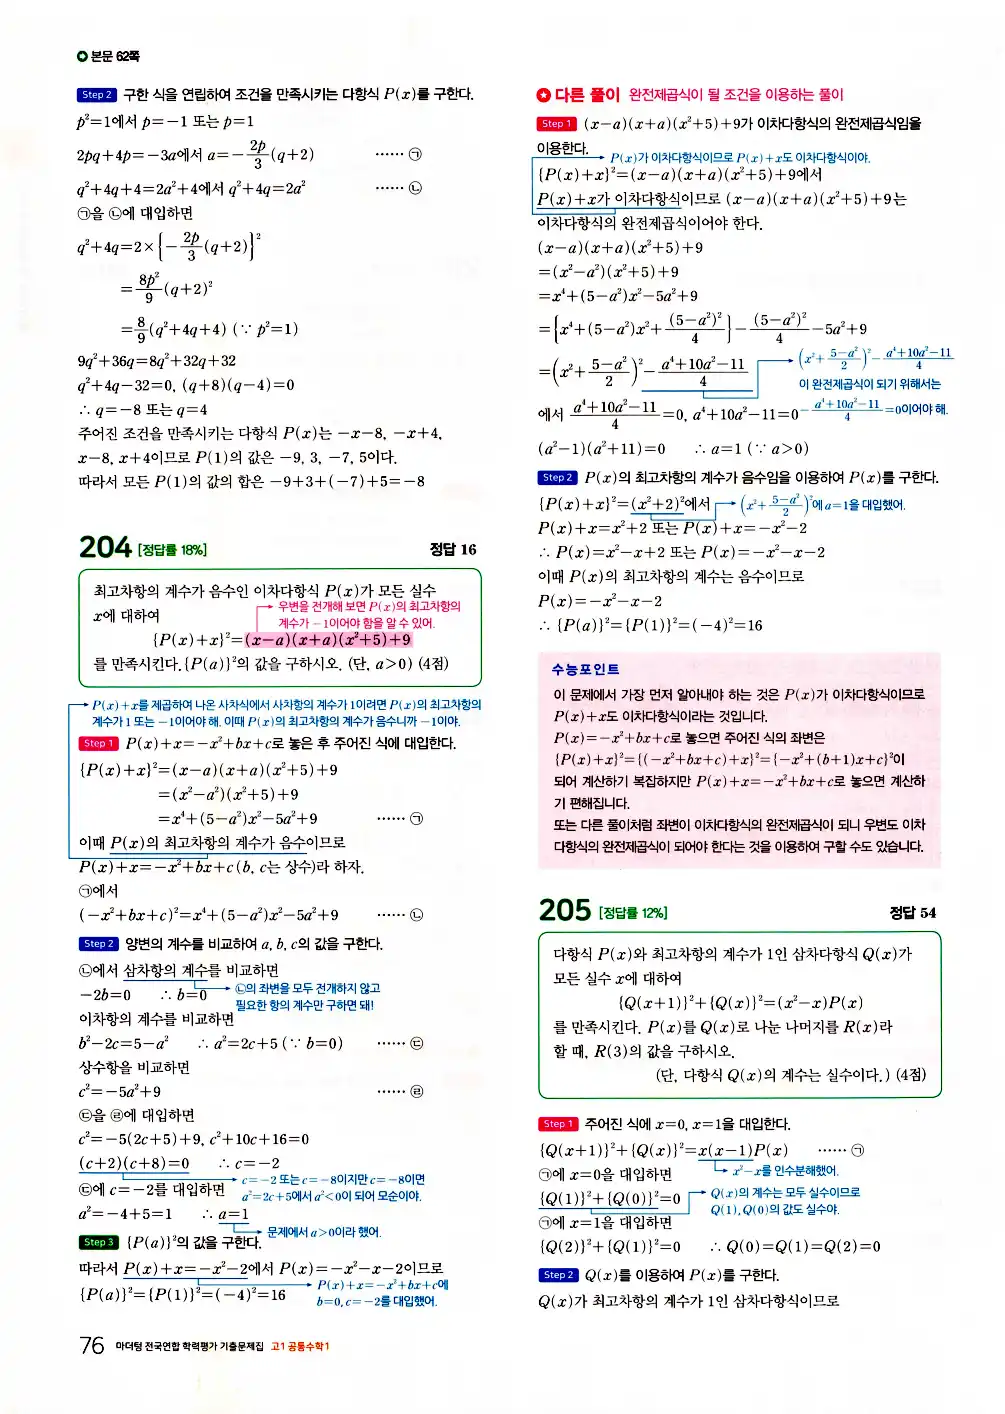 본문 62쪽
Step 2 구한 식을 연립하여 조건을 만족시키는 다항식 P(x)를 구한다.
p²=1에서 p=-1 또는 p=1
2pq+4p=-3a에서 a=-2p/3(q+2) ······ ㉠
q²+4q+4=2a²+4에서 q²+4q=2a² ······ ㉡
㉠을 ㉡에 대입하면
q²+4q=2×{-2p/3(q+2)}²
=8p²/9(q+2)²
=8/9(q²+4q+4) (∵ p²=1)
9q²+36q=8q²+32q+32
q²+4q-32=0, (q+8)(q-4)=0
∴ q=-8 또는 q=4
주어진 조건을 만족시키는 다항식 P(x)는 -x-8, -x+4,
x-8, x+4이므로 P(1)의 값은 -9, 3, -7, 5이다.
따라서 모든 P(1)의 값의 합은 -9+3+(-7)+5=-8
204 [정답률 18%] 정답 16
최고차항의 계수가 음수인 이차다항식 P(x)가 모든 실수
x에 대하여
우변을 전개해 보면 P(x)의 최고차항의
계수가 -1이어야 함을 알 수 있어.
{P(x)+x}²=(x-a)(x+a)(x²+5)+9
를 만족시킨다. {P(a)}²의 값을 구하시오. (단, a>0) (4점)
P(x)+x를 제곱하여 나온 사차식에서 사차항의 계수가 1이려면 P(x)의 최고차항의
계수가 1 또는 -1이어야 해. 이때 P(x)의 최고차항의 계수가 음수니까 -1이야.
Step 1 P(x)+x=-x²+bx+c로 놓은 후 주어진 식에 대입한다.
{P(x)+x}²=(x-a)(x+a)(x²+5)+9
=(x²-a²)(x²+5)+9
=x⁴+(5-a²)x²-5a²+9 ······ ㉠
이때 P(x)의 최고차항의 계수가 음수이므로
P(x)+x=-x²+bx+c(b, c는 상수)라 하자.
㉠에서
(-x²+bx+c)²=x⁴+(5-a²)x²-5a²+9 ······ ㉡
Step 2 양변의 계수를 비교하여 a, b, c의 값을 구한다.
㉡에서 삼차항의 계수를 비교하면
-2b=0 ∴ b=0
㉡의 좌변을 모두 전개하지 않고
필요한 항의 계수만 구하면 돼!
이차항의 계수를 비교하면
b²-2c=5-a² ∴ a²=2c+5 (∵ b=0) ······ ㉢
상수항을 비교하면
c²=-5a²+9 ······ ㉣
㉢을 ㉣에 대입하면
c²=-5(2c+5)+9, c²+10c+16=0
(c+2)(c+8)=0 ∴ c=-2
c=-2 또는 c=-8이지만 c=-8이면
a²=2c+5에서 a²<0이 되어 모순이야.
㉢에 c=-2를 대입하면
a²=-4+5=1 ∴ a=1
문제에서 a>0이라 했어.
Step 3 {P(a)}²의 값을 구한다.
따라서 P(x)+x=-x²-2에서 P(x)=-x²-x-2이므로
{P(a)}²={P(1)}²=(-4)²=16
P(x)+x=-x²+bx+c에
b=0, c=-2를 대입했어.
76 마더텅 전국연합 학력평가 기출문제집 고1 공통수학1
다른 풀이 완전제곱식이 될 조건을 이용하는 풀이
Step 1 (x-a)(x+a)(x²+5)+9가 이차다항식의 완전제곱식임을
이용한다.
P(x)가 이차다항식이므로 P(x)+x도 이차다항식이야.
{P(x)+x}²=(x-a)(x+a)(x²+5)+9에서
P(x)+x가 이차다항식이므로 (x-a)(x+a)(x²+5)+9는
이차다항식의 완전제곱식이어야 한다.
(x-a)(x+a)(x²+5)+9
=(x²-a²)(x²+5)+9
=x⁴+(5-a²)x²-5a²+9
={x⁴+(5-a²)x²+(5-a²)²/4}-(5-a²)²/4-5a²+9
=(x²+(5-a²)/2)²-(a⁴+10a²-11)/4
(x²+(5-a²)/2)²-(a⁴+10a²-11)/4
이 완전제곱식이 되기 위해서는
-(a⁴+10a²-11)/4=0이어야 해.
에서 (a⁴+10a²-11)/4=0, a⁴+10a²-11=0
(a²-1)(a²+11)=0 ∴ a=1 (∵ a>0)
Step 2 P(x)의 최고차항의 계수가 음수임을 이용하여 P(x)를 구한다.
{P(x)+x}²=(x²+2)²에서
(x²+(5-a²)/2)²에 a=1을 대입했어.
P(x)+x=x²+2 또는 P(x)+x=-x²-2
∴ P(x)=x²-x+2 또는 P(x)=-x²-x-2
이때 P(x)의 최고차항의 계수는 음수이므로
P(x)=-x²-x-2
∴ {P(a)}²={P(1)}²=(-4)²=16
수능포인트
이 문제에서 가장 먼저 알아내야 하는 것은 P(x)가 이차다항식이므로
P(x)+x도 이차다항식이라는 것입니다.
P(x)=-x²+bx+c로 놓으면 주어진 식의 좌변은
{P(x)+x}²={(-x²+bx+c)+x}²={-x²+(b+1)x+c}²이
되어 계산하기 복잡하지만 P(x)+x=-x²+bx+c로 놓으면 계산하
기 편해집니다.
또는 다른 풀이처럼 좌변이 이차다항식의 완전제곱식이 되니 우변도 이차
다항식의 완전제곱식이 되어야 한다는 것을 이용하여 구할 수도 있습니다.
205 [정답률 12%] 정답 54
다항식 P(x)와 최고차항의 계수가 1인 삼차다항식 Q(x)가
모든 실수 x에 대하여
{Q(x+1)}²+{Q(x)}²=(x²-x)P(x)
를 만족시킨다. P(x)를 Q(x)로 나눈 나머지를 R(x)라
할 때, R(3)의 값을 구하시오.
(단, 다항식 Q(x)의 계수는 실수이다.) (4점)
Step 1 주어진 식에 x=0, x=1을 대입한다.
{Q(x+1)}²+{Q(x)}²=x(x-1)P(x) ······ ㉠
x²-x를 인수분해했어.
㉠에 x=0을 대입하면
{Q(1)}²+{Q(0)}²=0
Q(x)의 계수는 모두 실수이므로
Q(1), Q(0)의 값도 실수야.
㉠에 x=1을 대입하면
{Q(2)}²+{Q(1)}²=0 ∴ Q(0)=Q(1)=Q(2)=0
Step 2 Q(x)를 이용하여 P(x)를 구한다.
Q(x)가 최고차항의 계수가 1인 삼차다항식이므로